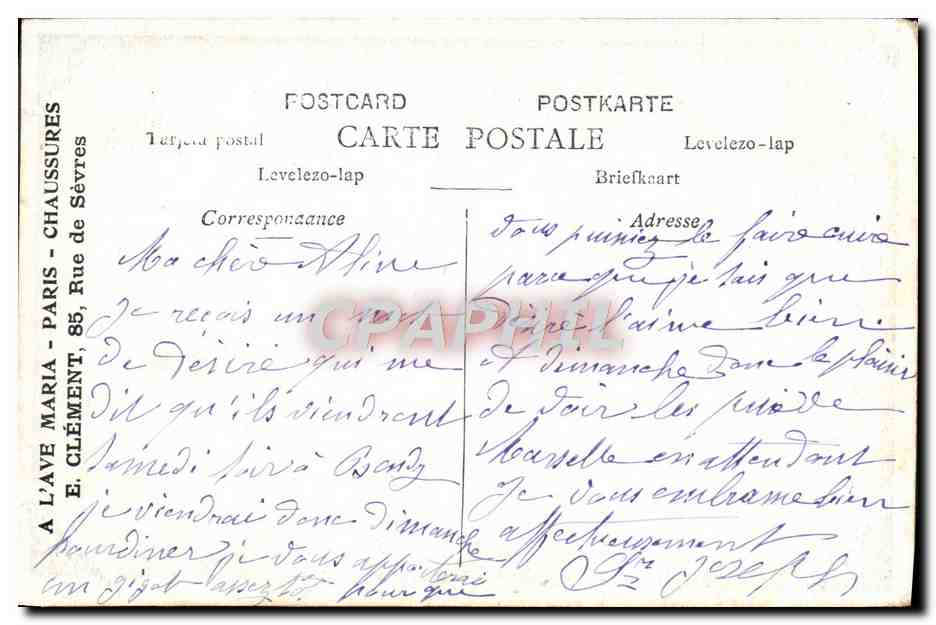 A L'AVE MARIA - PARIS - CHAUSSURES
E. CLÉMENT, 85, Rue de Sèvres
POSTCARD POSTKARTE
Tarjeta postal CARTE POSTALE Levelezo-lap
Levelezo-lap Briefkaart
Correspondance
Adresse
Ma chère Aline
Je reçois un mot
de Désiré qui me
dit qu'ils viendront
samedi soir à Bondy
je viendrai donc dimanche
pour diner je vous apporterai
un gigot assez tôt pour que
vous puissiez le faire cuire
parce que je sais que
Désiré l'aime bien.
A dimanche donc le plaisir
de voir les
en attendant
Je vous embrasse bien
affectueusement
Joseph
CPAPHIL